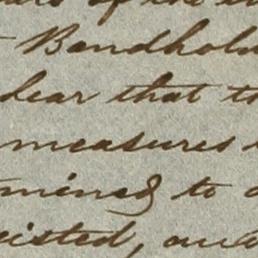 of the
Bondhol
clear that t
measures
mined to
isted, and